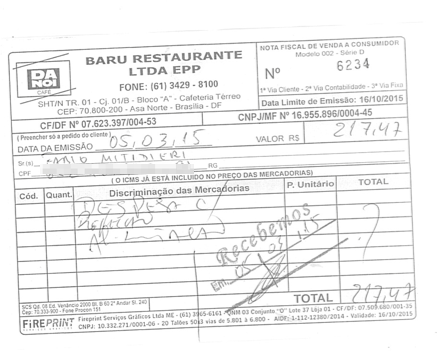 DANOI
CAFÉ
BARU RESTAURANTE
LTDA EPP
FONE: (61) 3429 - 8100
SHT/N TR. 01 - Cj. 01/B - Bloco "A" - Cafeteria Térreo
CEP: 70.800-200 - Asa Norte - Brasília - DF
NOTA FISCAL DE VENDA A CONSUMIDOR
Modelo 002 - Série D
Nº 6234
1ª Via Cliente - 2ª Via Contabilidade - 3ª Via Fixo
Data Limite de Emissão: 16/10/2015
CF/DF Nº 07.623.397/0004-53
CNPJ/MF Nº 16.955.896/0004-45
( Preencher só a pedido do cliente )
DATA DA EMISSÃO 05,03,15
VALOR R$ 217,47
Sr.(s) FABIO MITIDIERI
CPF RG
( O ICMS JÁ ESTÁ INCLUIDO NO PREÇO DAS MERCADORIAS)
Cód. Quant. Discriminação das Mercadorias P. Unitário TOTAL
DESPESA C/
REFEIÇÃO
Recebemos
Em 05 03 15
TOTAL 217,47
SCS Qd. 08 Ed. Venâncio 2000 Bl. B 60 2º Andar Sl. 240
Cep: 70.333-900 - Fone Procon 151
FIREPRINT Fireprint Serviços Gráficos Ltda ME - (61) 3965-6161 QNM 03 Conjunto "D" Lote 37 Loja 01 - CF/DF: 07.509.680/001-35
CNPJ: 10.332.271/0001-06 - 20 Talões 50x3 vias de 5.001 a 6.000 - AIDF: 1-112-12380/2014 - Validade: 16/10/2015